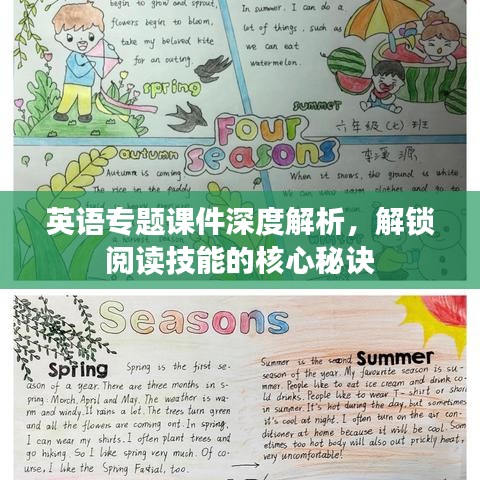 begin to grow and sprout,
flowers begin to bloom,
take my beloved kite
for an outing.
spring
In summer, I can do a
lot of things, such as
we can eat
watermelon.
summer
六年级(七)班
Four
seasons
autumn
Autumn is coming
The rice in the paddy
winter
When it snows, the ground is white
We can wear warm clothes and go to
英语专题课件深度解析，解锁
阅读技能的核心秘诀
Seasons
Spring
Spring is the first se-
ason of a year. There are three months in s-
pring. March, April and May. The weather is wa-
rm and windy. It rains a lot. The trees turn green
and all the flowers are coming out. In spring,
I can wear my shirts. I often plant trees and
go hiking. So I like spring very much. Of co-
urse, I like the Spring Fastial, too.
Summer
Summer is the second
season of the year. My favourite season is su-
mmer. People like to eat ice cream and drink co-
ld drinks. People like to wear T-shirt or short
in summer. It's hot during the day, but sometimes
it's cool at night. I often turn on the air con-
ditioner at home because it will be cool. Som
etimes too hot body will also out prickly heat,
very uncomfortable!